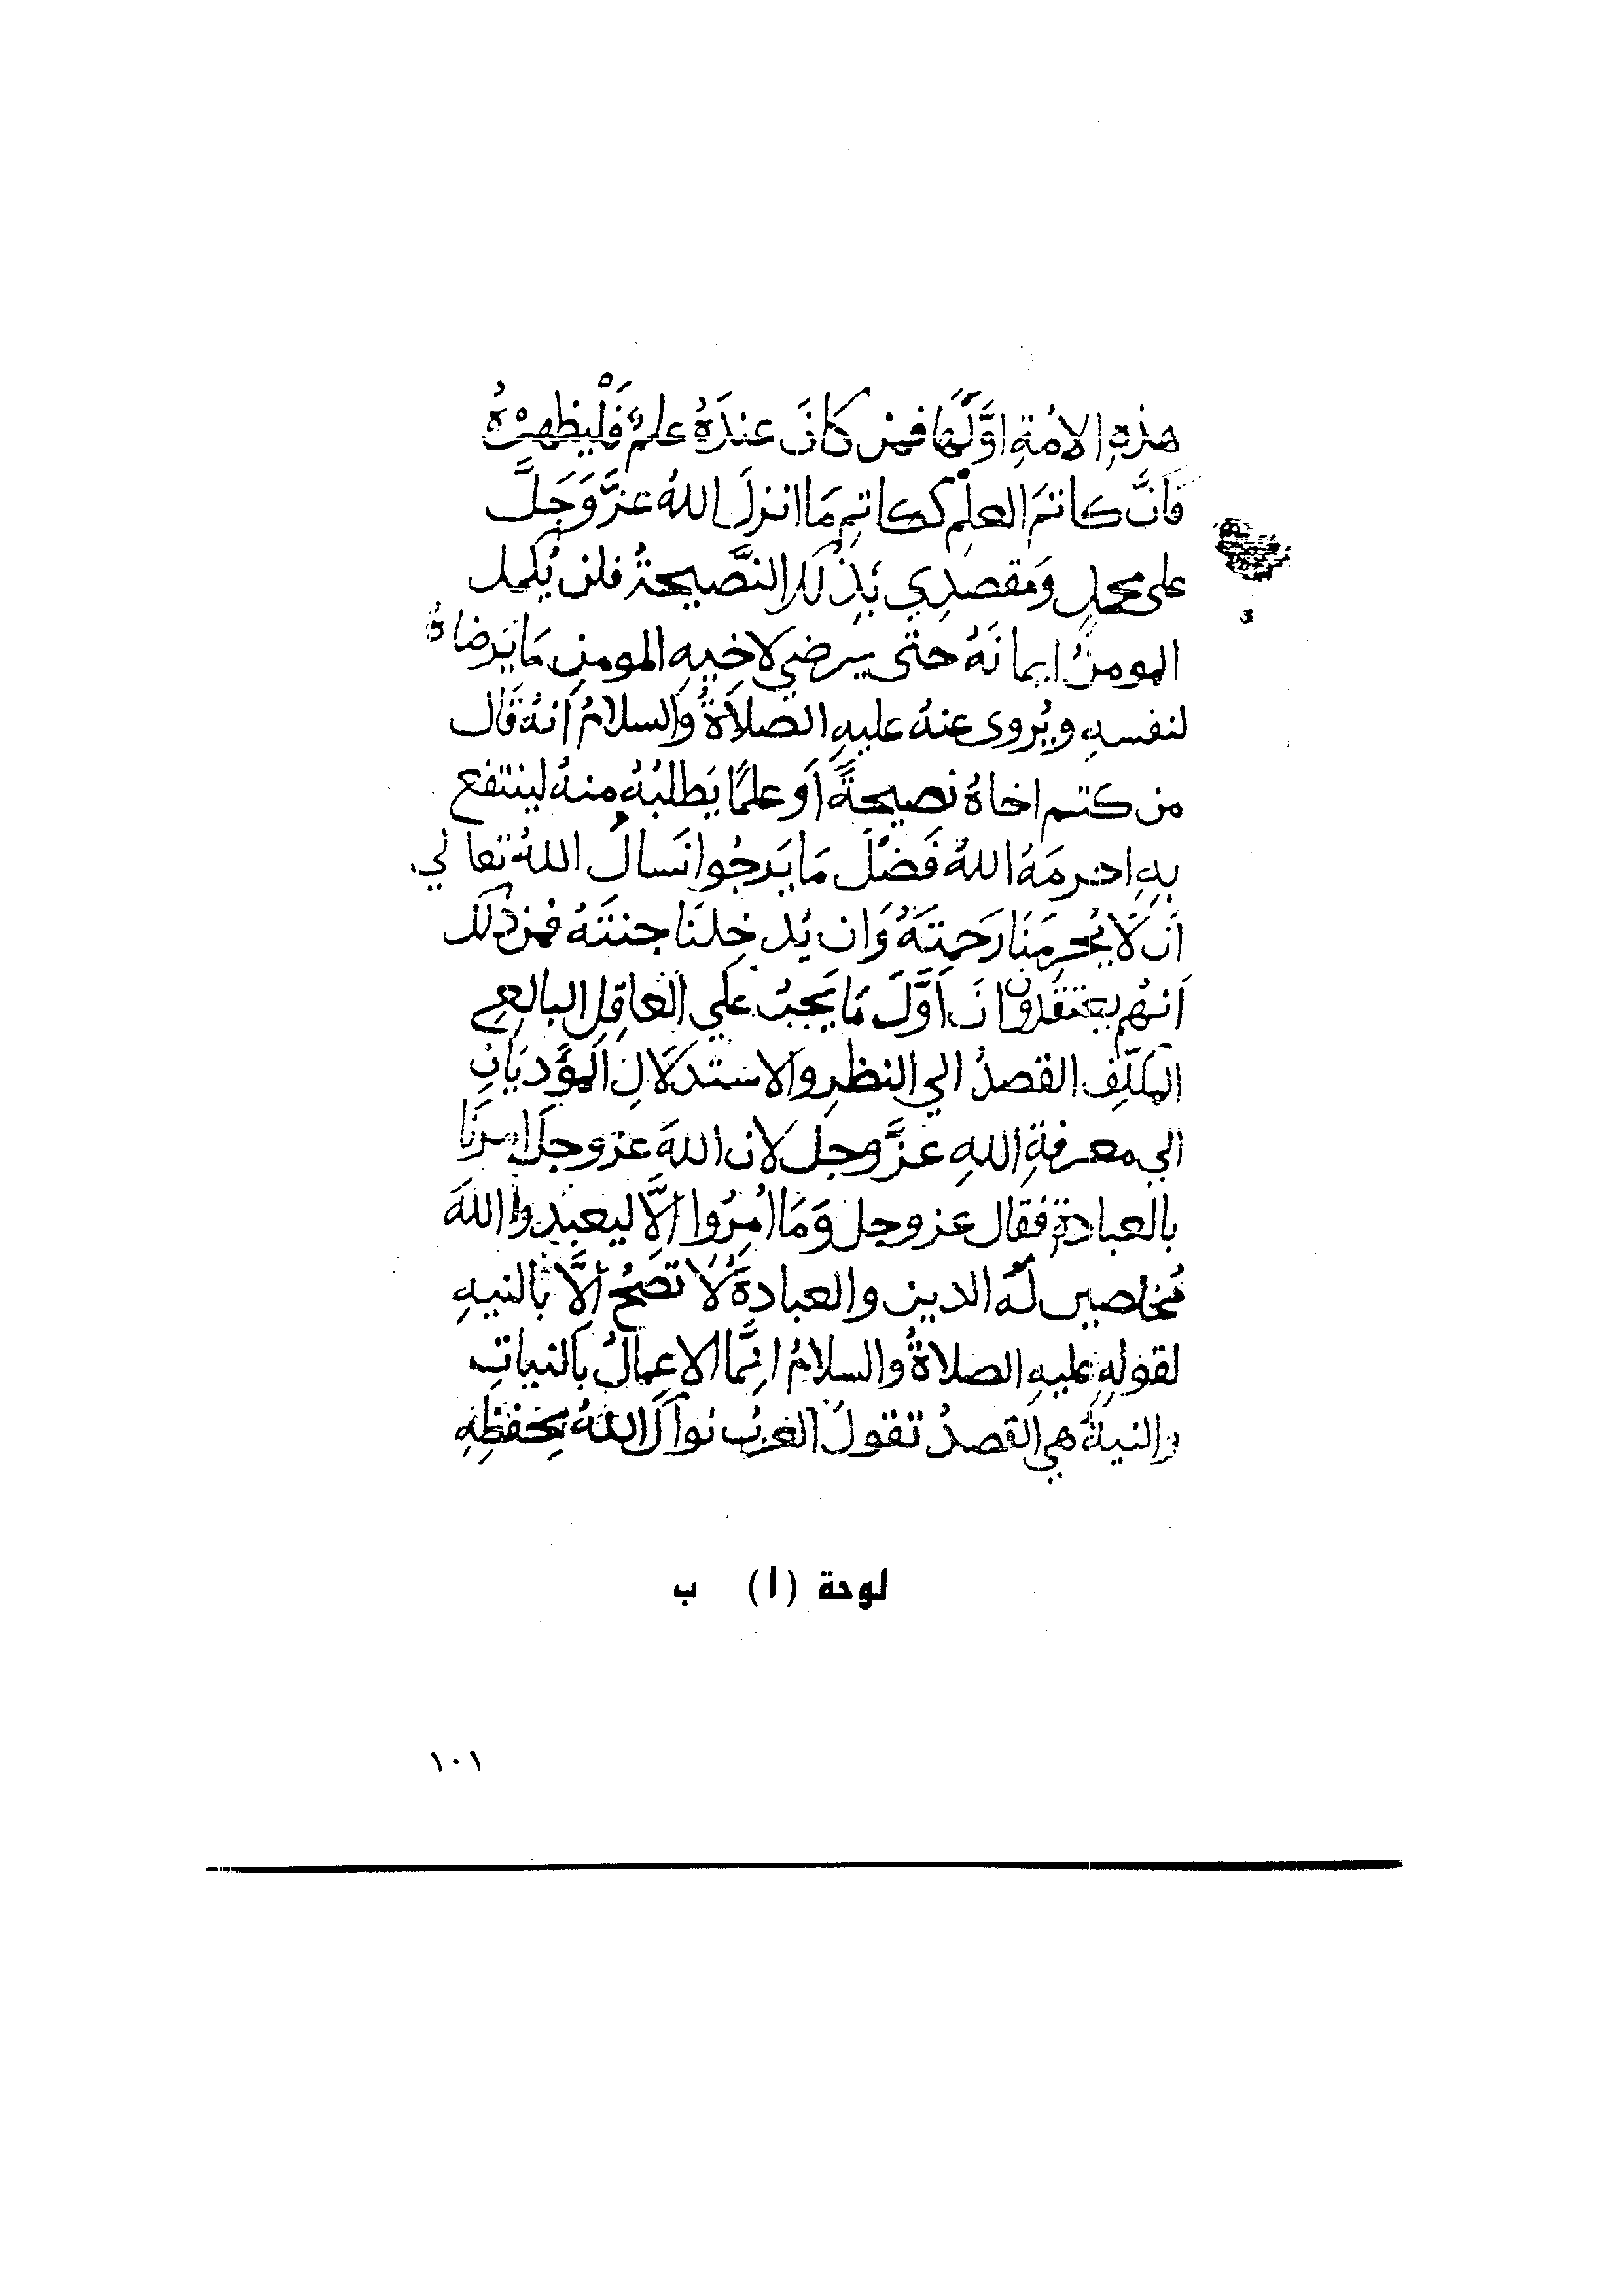 هذهِ الامُةِ اوَّلَهَا فمن كَانَ عندَهُ علمٌ فَلْيظهِرْهُ
فَانَّ كاتمَ العلِم ككاتِمِ مَا انزلَ اللهُ عزَّ وَجَلَّ
على محمدٍ وَمقصدِي بَذِلكَ النَّصيحةُ فلن يُكمل
المومنُ ايمانَهُ حتى يرضي لاخِيهِ المومنِ مَا يَرضاهُ
لنفسهِ ويُروى عنهُ عليهِ الصلاَةُ والسلامُ اَنهُ قَال
من كتم اخاهُ نصيحةً اَو علمًا يَطلبُهُ منهُ لينتفع
بِهِ احرمَهُ اللهُ فَضْلَ مَا يَرجُوا نَسالُ اللهُ تعالي
اَن لَا يُحرِمَنَا رَحمتَهُ وَان يُدخِلنَا جنتَهُ فمن ذلك
اَنهُم يعتقدون انَ اَوَّلَ مَا يَجبُ علي العاقِلِ البالغِ
المكلَّفِ القصدُ الي النظرِ والاستدلَالِ المؤَديَانِ
الي معرفةِ اللهِ عزَّ وجل لان اللهَ عز وجلَ امرنَا
بالعبادةِ فقال عز وجل وَمَا اُمِرُوا اِلَّا ليعبدوا اللهَ
مُخلصين لَهُ الدين والعبادةُ لَا تصَحُ اِلَّا بالنيهِ
لقولهِ عليهِ الصلاةُ والسلامُ انِمَّا الاعمالُ بالنياتِ
والنيةُ هي القصدُ تقولُ العربُ نواكَ اللهُ بحفظِهِ
لوحة (١) ب
١٠١